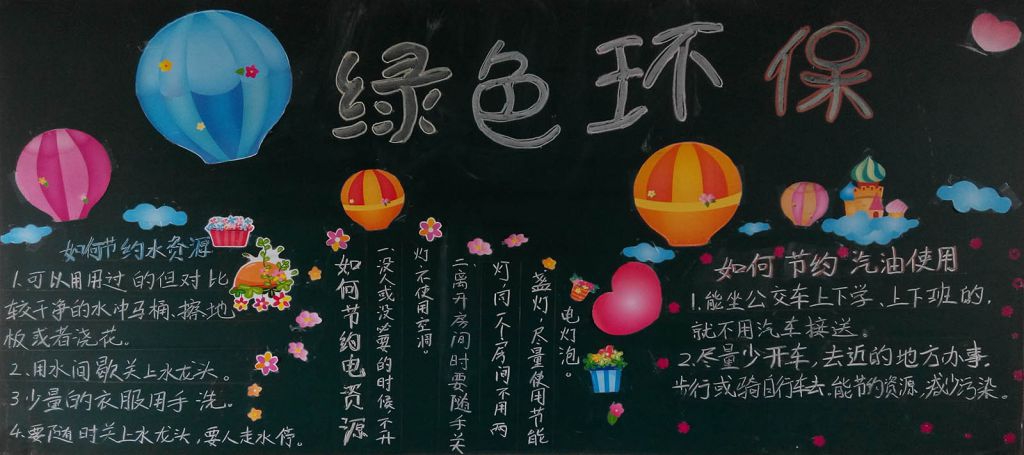 绿色环保
如何节约水资源
1.可以用用过的但对比
较干净的水冲马桶、擦地
板或者浇花。
2.用水间歇关上水龙头。
3少量的衣服用手洗。
4.要随时关上水龙头,要人走水停。
如何节约电资源
一.没人或没必要的时候不开
灯不使用空调。
二.离开房间时要随手关
灯,同一个房间不用两
盏灯,尽量使用节能
电灯泡。
如何节约汽油使用
1.能坐公交车上下学、上下班的,
就不用汽车接送。
2.尽量少开车,去近的地方办事,
步行或骑自行车去.能节约资源,减少污染。